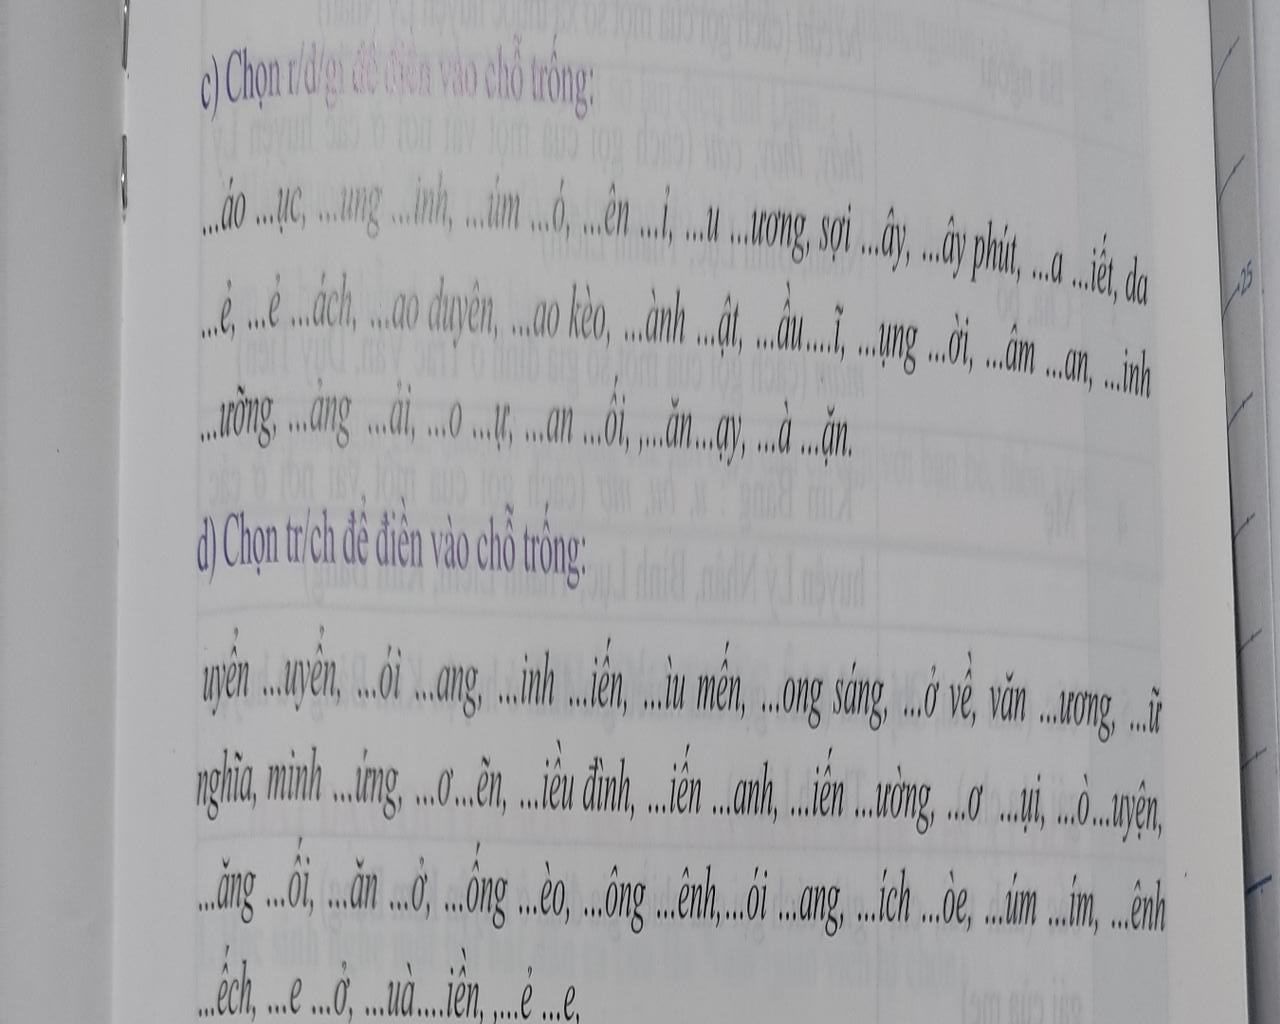 c) Chọn r/d/gi để điền vào chỗ trống:
...áo ...ục, ...ung ...inh, ...úm ...ó, ...ên ...ỉ, ...u ...ương, sợi ...ây, ...ây phút, ...a ...iết, da
...ẻ, ...ẻ ...ách, ...ao duyên, ...ao kèo, ...ành ...ật, ...ầu....ĩ, ...ụng ...ời, ...âm ...an, ...inh
...ưỡng, ...ảng ...ải, ...o ...ự, ...an ...ối, ,...ăn...ạy, ...à ...ặn.
d) Chọn tr/ch để điền vào chỗ trống:
uyển ...uyển, ...ói ...ang, ...inh ...iến, ...ìu mến, ...ong sáng, ...ở về, văn ...ương, ...ữ
nghĩa, minh ...ứng, ...ơ...ẽn, ...iều đình, ...iến ...anh, ...iến ...ường, ...ơ ...ụi, ...ò...uyện,
...ăng ...ối, ...ăn ...ở, ...ống ...èo, ...ông ...ênh,...ói ...ang, ...ích ...òe, ...úm ...ím, ...ênh
...ếch, ...e ...ở, ...uà....iền, ,...ẻ ...e,
25